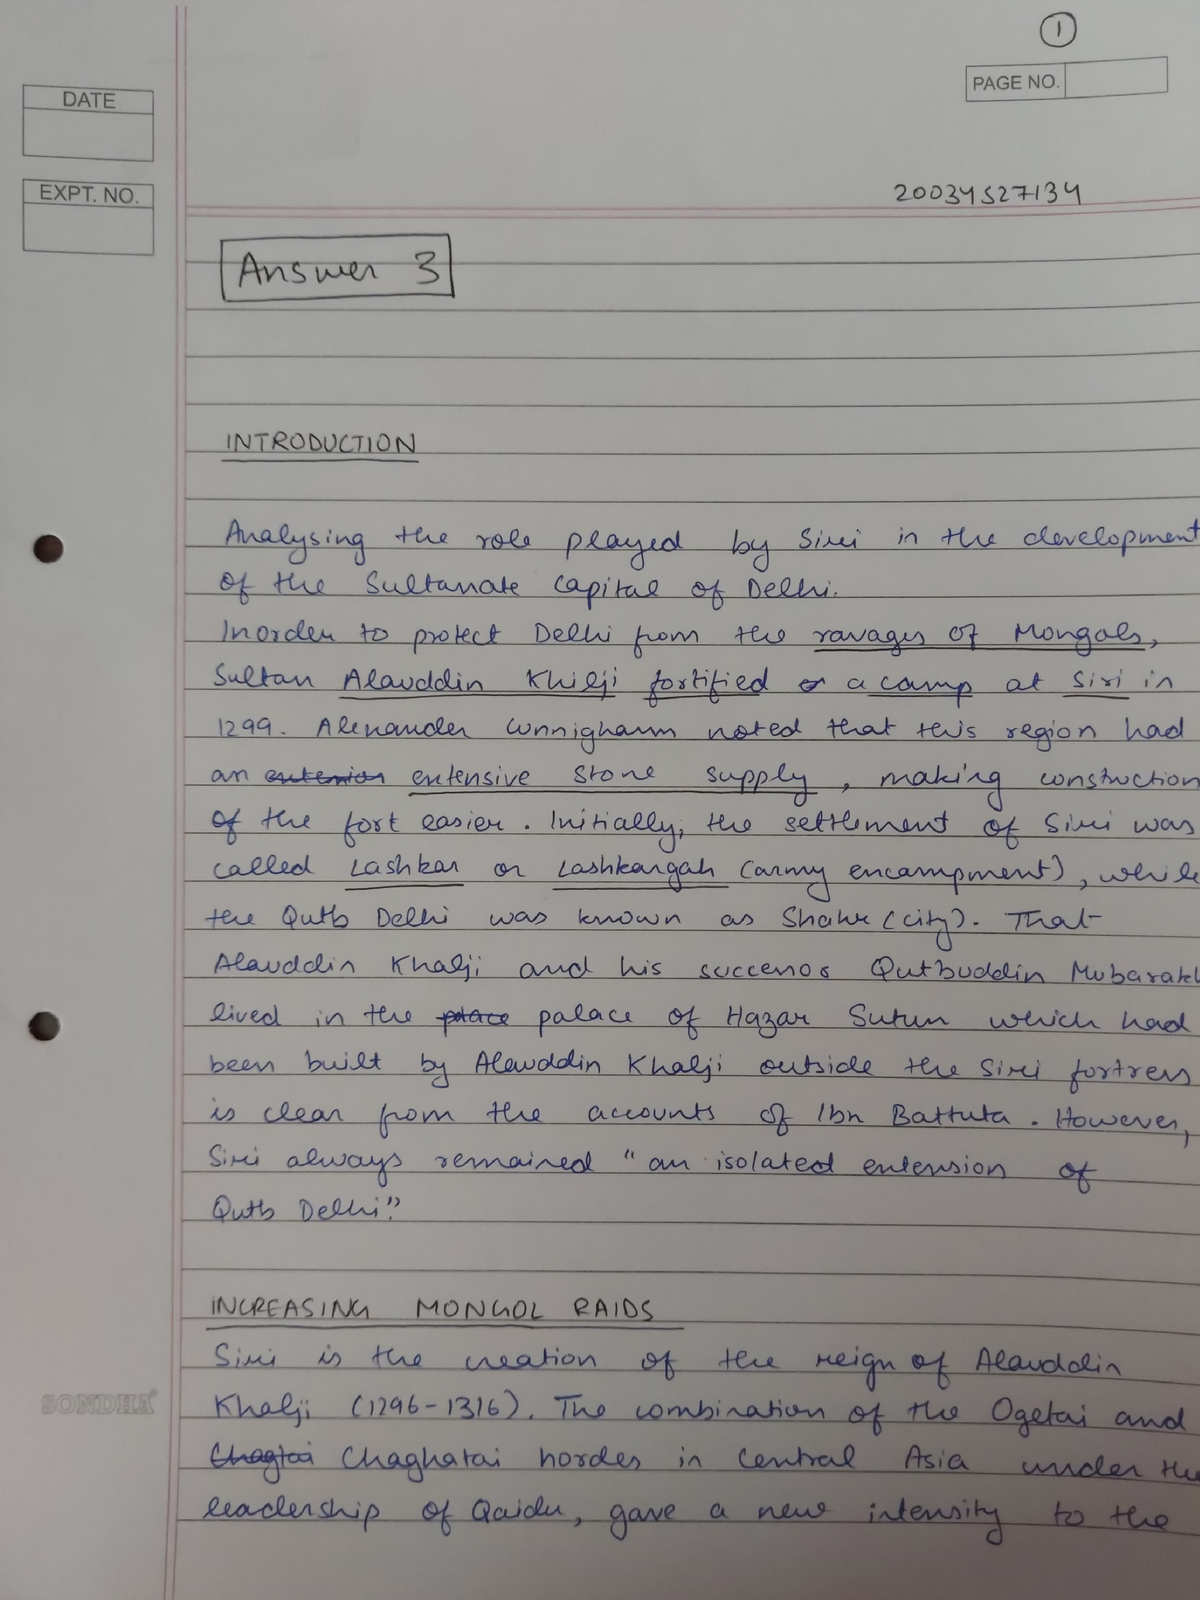 1
PAGE NO.
DATE
EXPT. NO.
20034527134
Answer 3
INTRODUCTION
Analysing the role played by Siri in the development
of the Sultanate capital of Delhi.
Inorder to protect Delhi from the ravages of Mongols,
Sultan Alauddin Khilji fortified a camp at Siri in
1299. Alexander Cunnigham noted that this region had
an extensive stone supply, making construction
of the fort easier. Initially, the settlement of Siri was
called Lashkar or Lashkargah (army encampment), while
the Qutb Delhi was known as Shahr (city). That
Alauddin Khalji and his successor Qutbuddin Mubarak
lived in the palace of Hazar Sutun which had
been built by Alauddin Khalji outside the Siri fortress
is clear from the accounts of Ibn Battuta. However,
Siri always remained "an isolated extension of
Qutb Delhi".
INCREASING MONGOL RAIDS
Siri is the creation of the reign of Alauddin
Khalji (1296-1316). The combination of the Ogetai and
Chagtai Chaghatai hordes in Central Asia under the
leadership of Qaidu, gave a new intensity to the
SONDHA